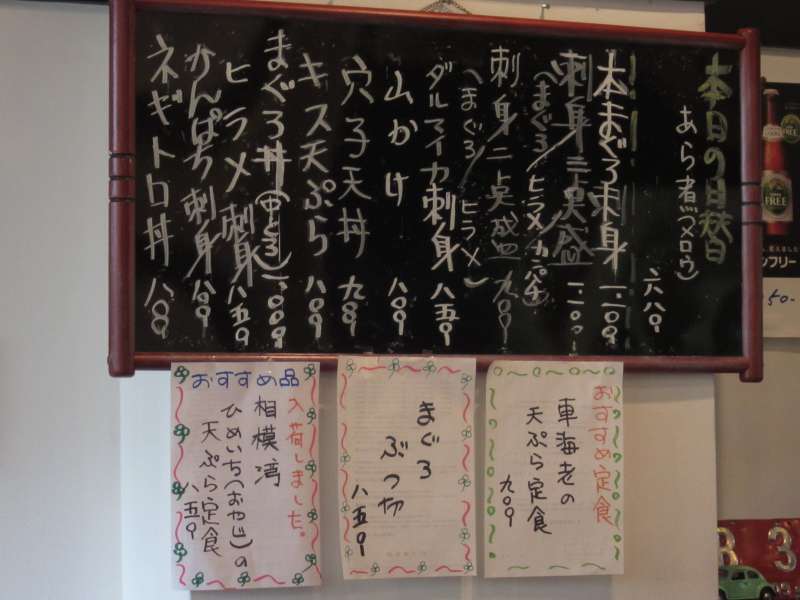 本日の日替
あら煮(メロウ)
六八〇
本まぐろ刺身 一.二〇〇
刺身三点盛 一.二〇〇
(まぐろ/ヒラメ/カンパチ)
刺身二点盛 九〇〇
(まぐろ/ヒラメ)
ダルマイカ刺身 八五〇
山かけ 八〇〇
穴子天丼 九八〇
キス天ぷら 八〇〇
まぐろ丼(中とろ) 一.〇〇〇
ヒラメ刺身 八五〇
かんぱち刺身 八〇〇
ネギトロ丼 八〇〇
おすすめ定食
車海老の
天ぷら定食
九〇〇
まぐろ
ぶつ切
八五〇
おすすめ品
入荷しました。
相模湾
ひめいち(おやじ)の
天ぷら定食
八五〇
FREE
ンフリー
50-
83